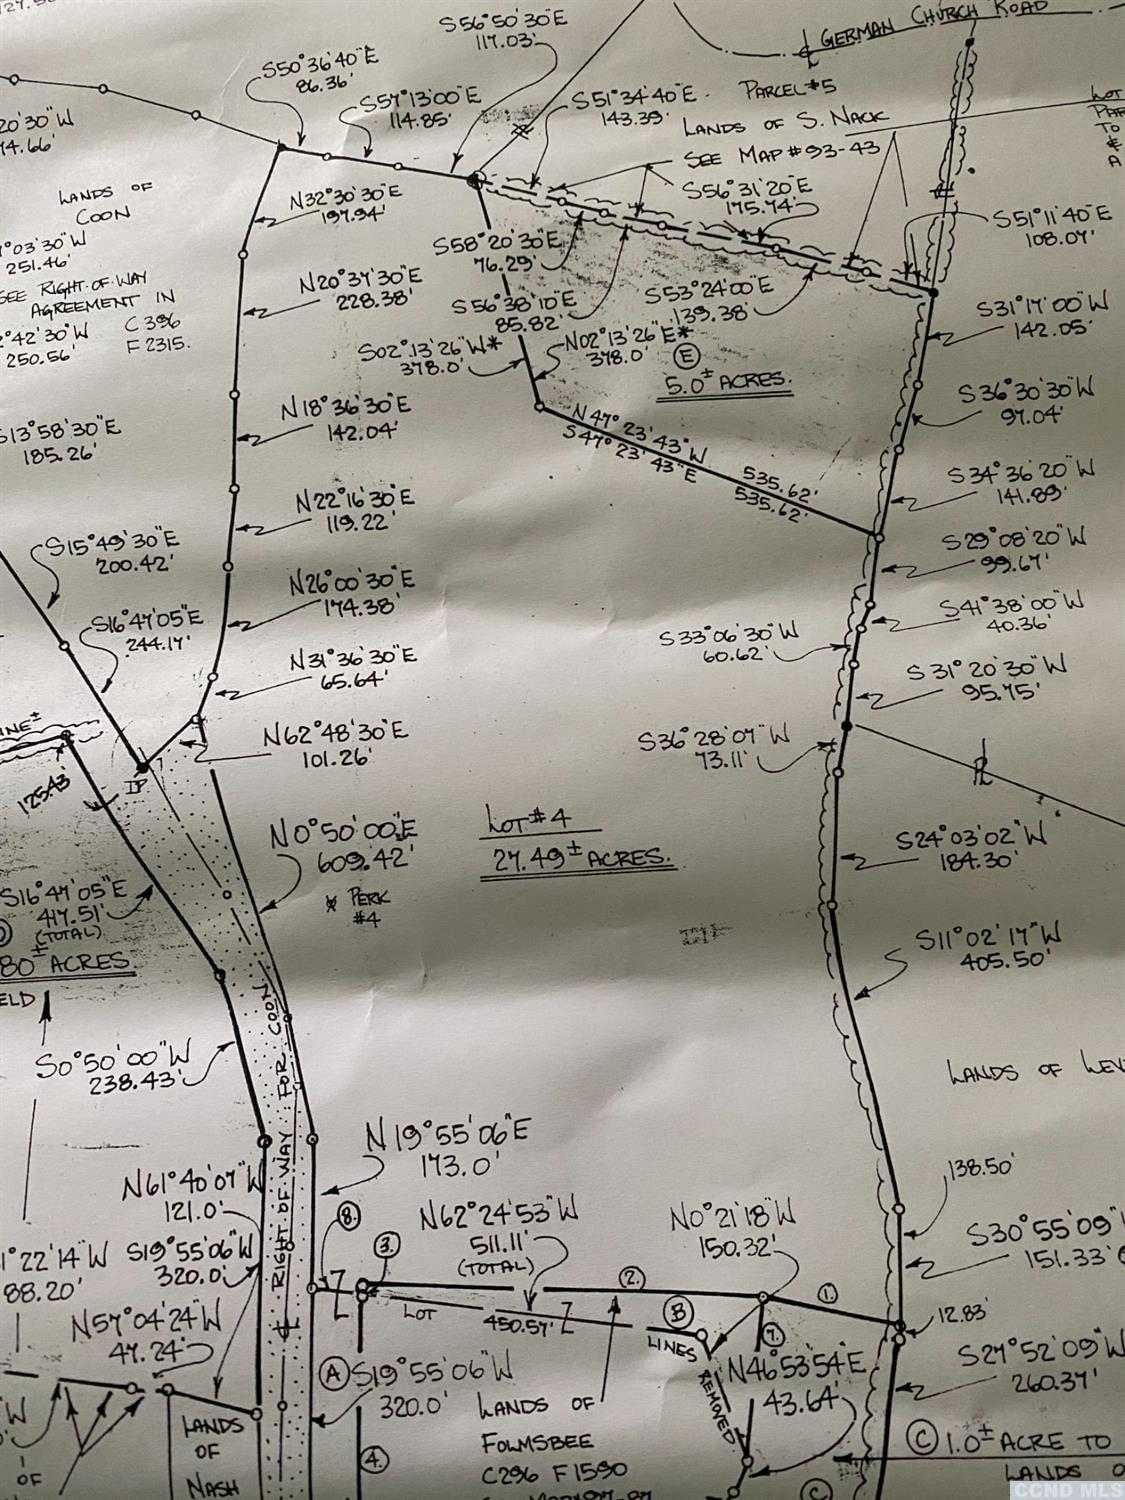 S56°50'30"E
117.03'
GERMAN CHURCH ROAD
S50°36'40"E
86.36'
S57°13'00"E
114.85'
S51°34'40"E
143.39'
PARCEL #5
LANDS OF S. NACK
SEE MAP #93-43
LOT
TO
&
A
20'30"W
74.66'
LANDS OF
COON
N32°30'30"E
197.94'
S56°31'20"E
175.74'
S51°11'40"E
108.07'
°03'30"W
251.46'
SEE RIGHT OF WAY
AGREEMENT IN
C396
F2315.
°42'30"W
250.56'
S58°20'30"E
76.29'
N20°37'30"E
228.38'
S56°38'10"E
85.82'
S53°24'00"E
139.38'
S31°17'00"W
142.05'
S02°13'26"W*
378.0'
N02°13'26"E*
378.0'
E
5.0± ACRES.
S36°30'30"W
97.04'
N18°36'30"E
142.04'
S13°58'30"E
185.26'
N47°23'43"W
535.62'
S47°23'43"E
535.62'
S34°36'20"W
141.89'
N22°16'30"E
119.22'
S29°08'20"W
99.67'
S15°49'30"E
200.42'
N26°00'30"E
174.38'
S41°38'00"W
40.36'
S16°47'05"E
244.17'
S33°06'30"W
60.62'
N31°36'30"E
65.64'
S31°20'30"W
95.75'
INE±
N62°48'30"E
101.26'
S36°28'07"W
73.11'
125.43'
IP
N0°50'00"E
609.42'
* PERK
#4
LOT #4
27.49± ACRES.
S24°03'02"W
184.30'
S16°47'05"E
417.51'
(TOTAL)
80± ACRES.
S11°02'17"W
405.50'
ELD
S0°50'00"W
238.43'
RIGHT OF WAY FOR COON
LANDS OF LEV
N19°55'06"E
173.0'
138.50'
N61°40'07"W
121.0'
S19°55'06"W
320.0'
8.
3.
N62°24'53"W
511.11'
(TOTAL)
N0°21'18"W
150.32'
S30°55'09"
151.33'
1°22'14"W
88.20'
2.
1.
LOT
450.57'
B
LINES
7.
12.83'
N57°04'24"W
47.24'
A
S19°55'06"W
320.0'
REMOVED
N46°53'54"E
43.64'
S27°52'09"W
260.37'
LANDS OF
FOLMSBEE
C296 F1590
"W
OF
LANDS
OF
NASH
4.
C
C 1.0± ACRE TO
LANDS O
CCND MLS